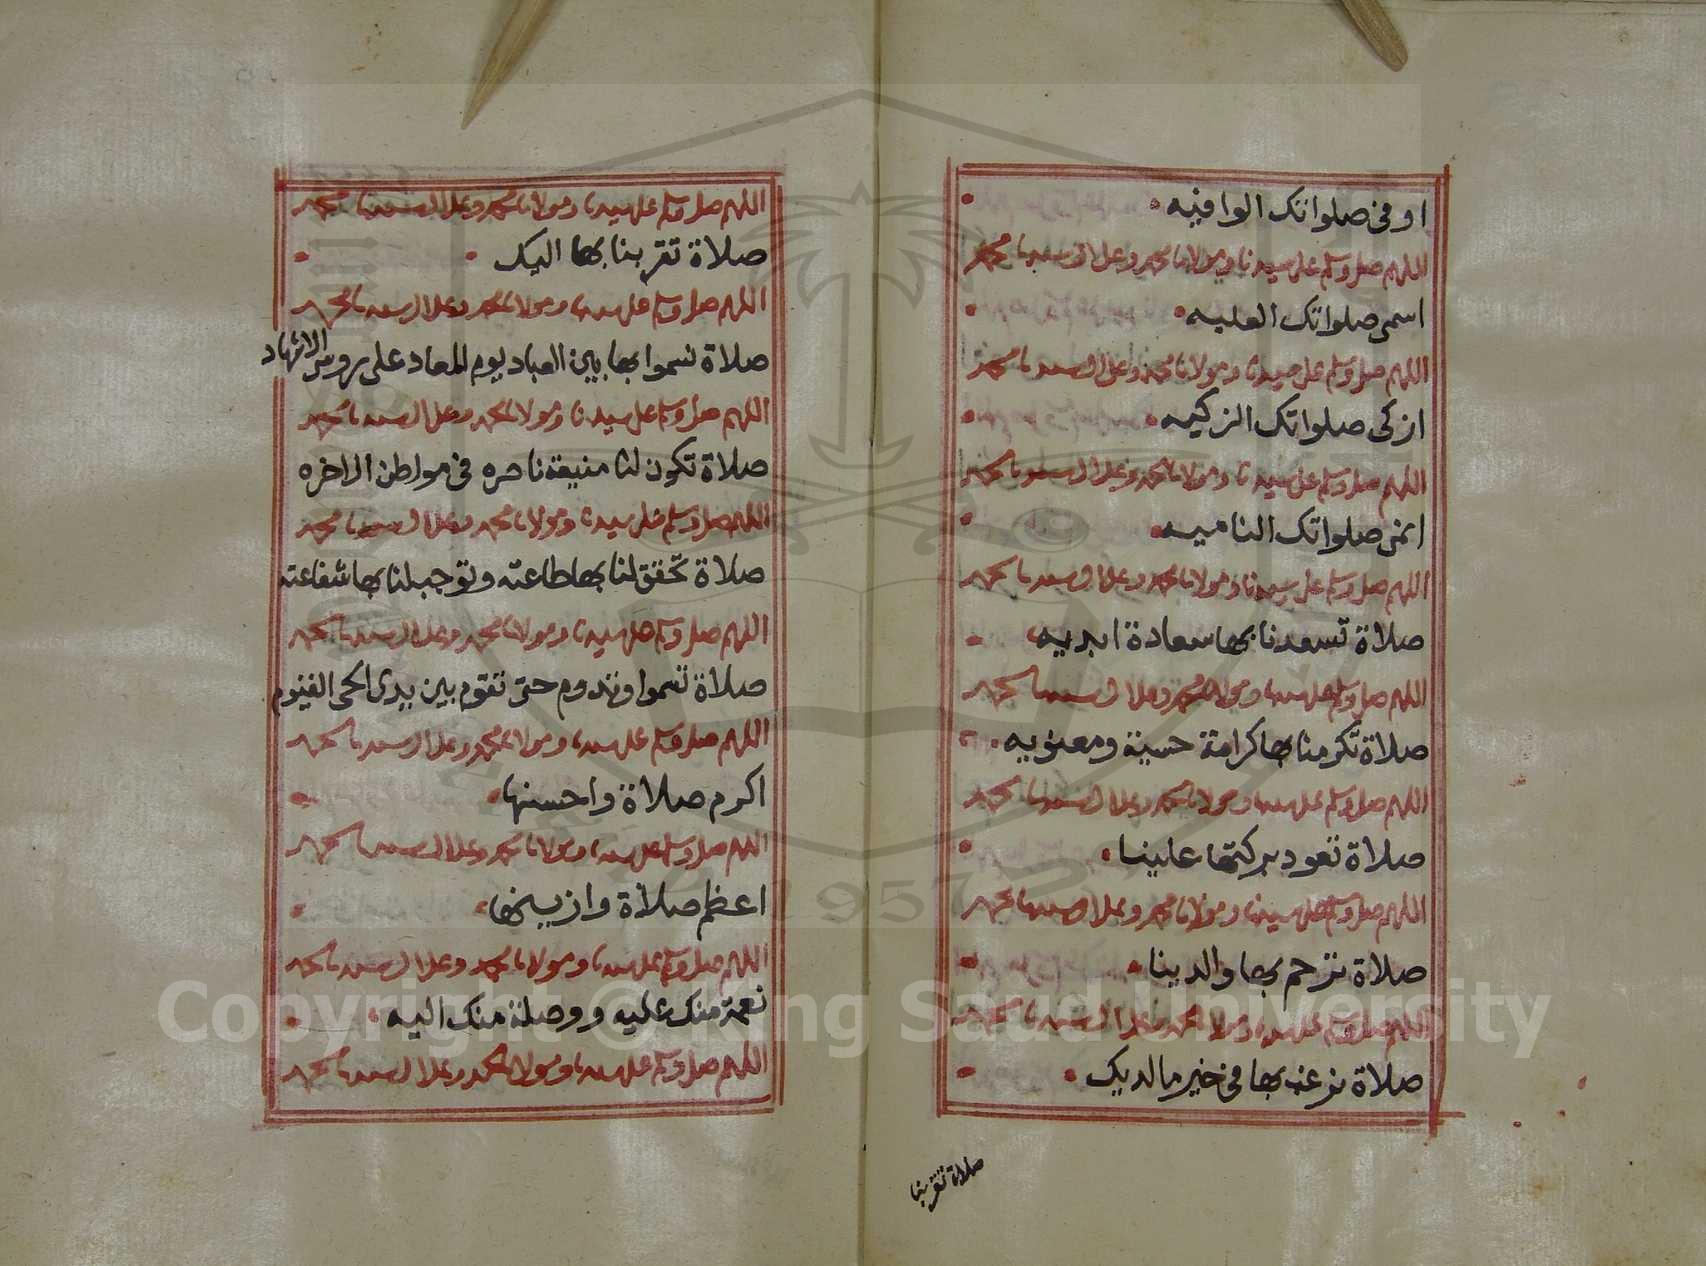 اوفى صلواتك الوافيه
اللهم صل وسلم على سيدنا ومولانا محمد وعلى ال سيدنا محمد
اسمى صلواتك العليه
اللهم صل وسلم على سيدنا ومولانا محمد وعلى ال سيدنا محمد
ازكى صلواتك الزكيه
اللهم صل وسلم على سيدنا ومولانا محمد وعلى ال سيدنا محمد
انمى صلواتك الناميه
اللهم صل وسلم على سيدنا ومولانا محمد وعلى ال سيدنا محمد
صلاة تسعدنا بها سعادة ابديه
اللهم صل وسلم على سيدنا ومولانا محمد وعلى ال سيدنا محمد
صلاة تكرمنا بها كرامة حسية ومعنويه
اللهم صل وسلم على سيدنا ومولانا محمد وعلى ال سيدنا محمد
صلاة تعود بركتها علينا
اللهم صل وسلم على سيدنا ومولانا محمد وعلى ال سيدنا محمد
صلاة ترحم بها والدينا
اللهم صل وسلم على سيدنا ومولانا محمد وعلى ال سيدنا محمد
صلاة نرغب بها في خير ما لديك
صلاة تقربنا
اللهم صل وسلم على سيدنا ومولانا محمد وعلى ال سيدنا محمد
صلاة تقربنا بها اليك
اللهم صل وسلم على سيدنا ومولانا محمد وعلى ال سيدنا محمد
صلاة نسموا بها بين العباد يوم المعاد على روس الاشهاد
اللهم صل وسلم على سيدنا ومولانا محمد وعلى ال سيدنا محمد
صلاة تكون لنا منيفة ناصره في مواطن الاخره
اللهم صل وسلم على سيدنا ومولانا محمد وعلى ال سيدنا محمد
صلاة تحقق لنا بها طاعته وتوجب لنا بها شفاعته
اللهم صل وسلم على سيدنا ومولانا محمد وعلى ال سيدنا محمد
صلاة تسموا وتدوم حتى تقوم بين يدى الحى القيوم
اللهم صل وسلم على سيدنا ومولانا محمد وعلى ال سيدنا محمد
اكرم صلاة واحسنها
اللهم صل وسلم على سيدنا ومولانا محمد وعلى ال سيدنا محمد
اعظم صلاة وازينها
اللهم صل وسلم على سيدنا ومولانا محمد وعلى ال سيدنا محمد
نعمة منك عليه ووصلة منك اليه
اللهم صل وسلم على سيدنا ومولانا محمد وعلى ال سيدنا محمد
Copyright © King Saud University
1957